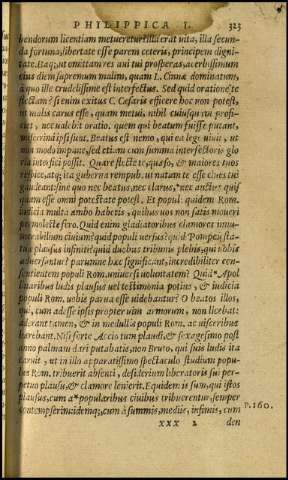 PHILIPPICA I. 323
bendorum licentiam metueretur: illa erat uita, illa secun-
da fortuna, libertate esse parem ceteris, principem digni-
tate. Itaq; ut omittam res aui tui prosperas, acerbissimum
eius diem supremum malim, quam L. Cinnæ dominatum,
à quo ille crudelissime est interfectus. Sed quid oratione te
flectam? si enim exitus C. Cæsaris efficere hoc non potest,
ut malis carus esse, quam metui, nihil cuiusquam profi-
ciet, nec ualebit oratio. quem qui beatum fuisse putant,
miseri ipsi sunt. Beatus est nemo, qui ea lege uiuit, ut
non modo impune, sed etiam cum summa interfectoris glo
ria interfici possit. Quare flecte te, quæso, & maiores tuos
respice, atq; ita guberna rempub. ut natum te esse ciues tui
gaudeant: sine quo nec beatus, nec clarus, *nec unctus quisquam
esse omni potestate potest. Et populi quidem Rom.
iudicia multa ambo habetis, quibus uos non satis moueri
permoleste fero. Quid enim gladiatoribus clamores innu-
merabilium ciuium? quid populi uersus? quid Pompeij sta-
tuæ plausus infiniti? quid duobus tribunis plebis, qui uobis
aduersantur? parumne hæc significant, incredibiliter con-
sentientem populi Rom. uniuersi uoluntatem? Quid? *Apol
linarium ludis plausus uel testimonia potius, & iudicia
populi Rom. uobis parua esse uidebantur? O beatos illos,
qui, cum adesse ipsis propter uim armorum, non liceret
aderant tamen, & in medullis populi Rom. ac uisceribus
hærebant. Nisi forte Accio tum plaudi, & sexagesimo post
anno palmam dari putabatis, non Bruto, qui suis ludis ita
caruit, ut in illo apparatissimo spectaculo studium popu-
lus Rom. tribueret absenti, desiderium liberatoris sui per-
petuo plausu, & clamore leniret. Equidem is sum, qui istos
plausus, cum à *popularibus ciuibus tribuerentur, semper
contempserim: idemq;, cum à summis, medijs, infimis, cum
P. 160.
xxx 2 den